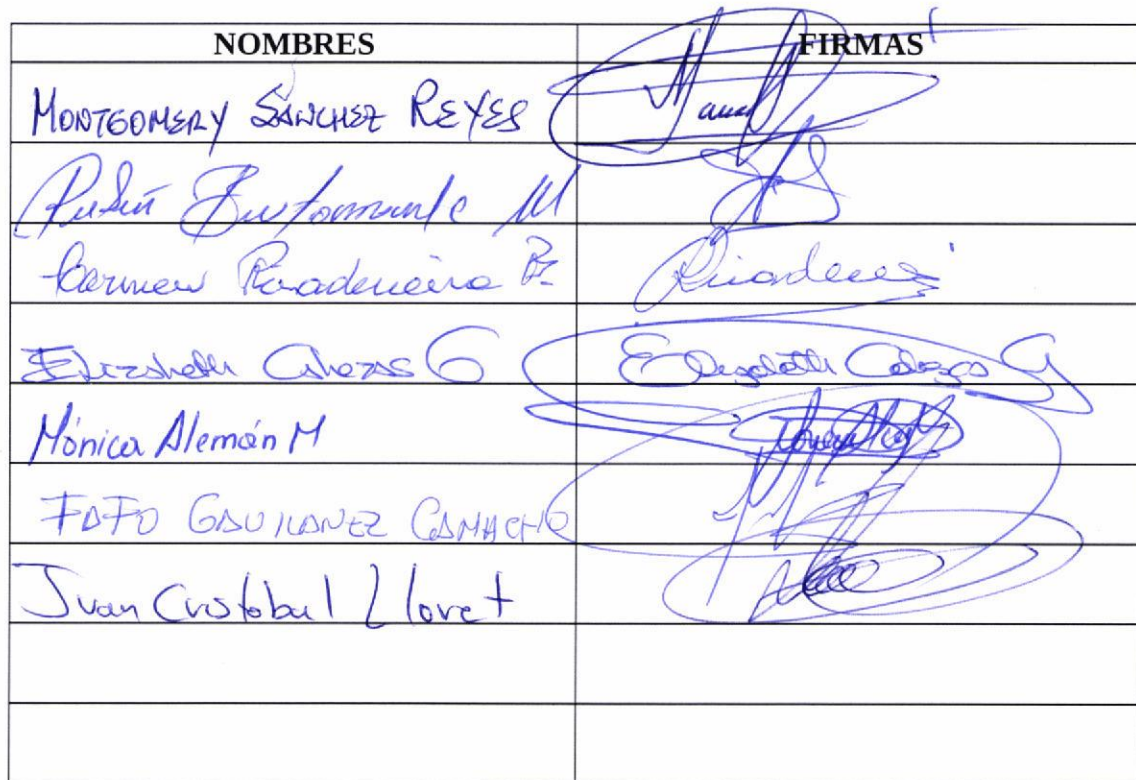 NOMBRES FIRMAS
MONTGOMERY SÁNCHEZ REYES
Rubén Bustamante M
Carmen Rivadeneira B.
Elizabeth Cabezas G Elizabeth Cabezas G
Mónica Alemán M
FAFO GAVILANEZ CAMACHO
Juan Cristobal Lloret